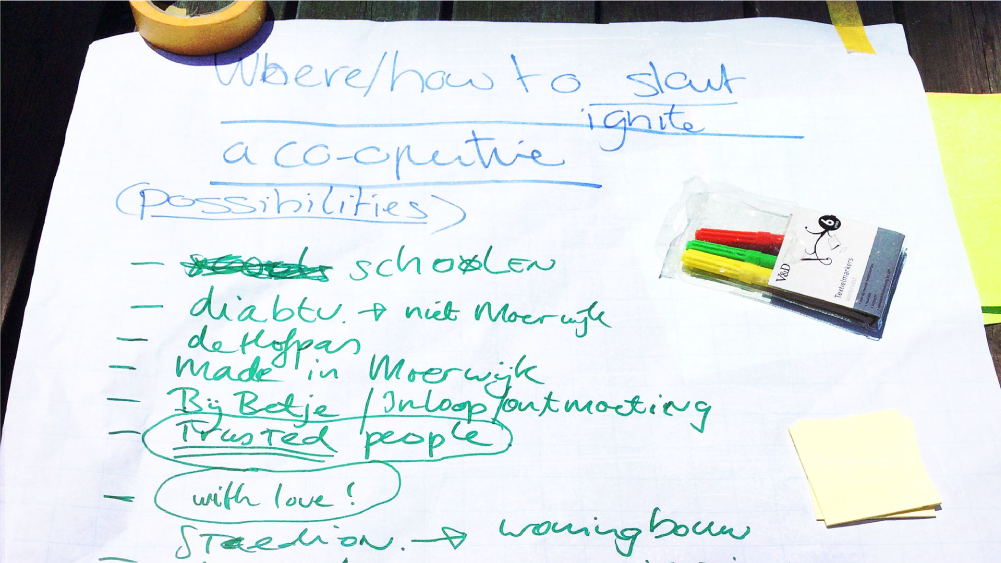 Where/how to start
ignite
a co-opertive
(possibilities)
- schoolen
- diabtv. → niet Moerwijk
- de Hofpas
- made in Moerwijk
- Bij Betje / Inloop/ontmoeting
- Trusted people
- with love!
Staedion. → woningbouw
6
V&D
Textielmarkers